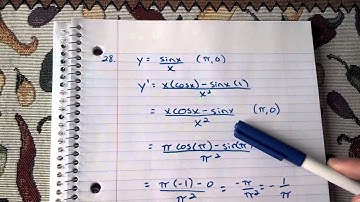 28. y = sinx/x (π,0)
y' = x(cosx) - sinx(1)/x²
= xcosx - sinx/x² (π,0)
= π cos(π) - sin(π)/π²
= π(-1) - 0/π² = -π/π² = -1/π